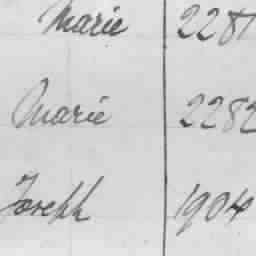 Marie 2281
Marie 2282
Joseph 1904